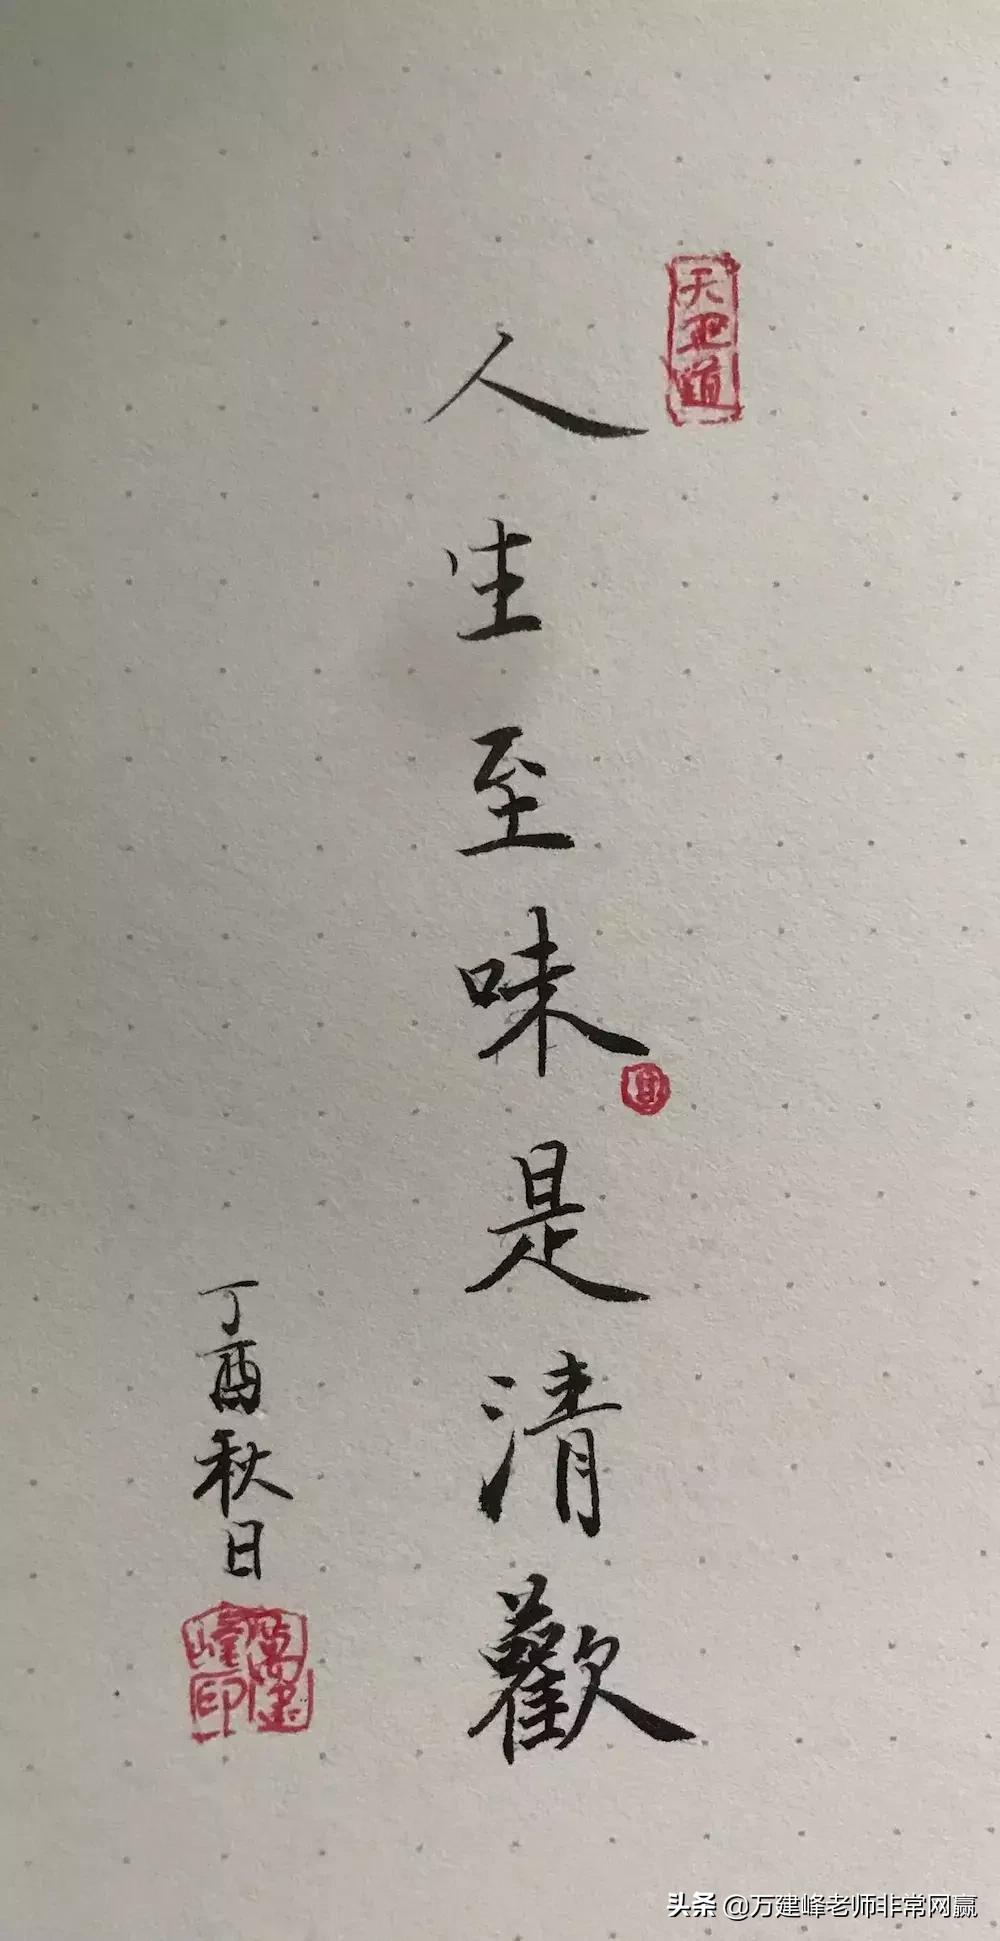 人生至味是清歡
丁酉秋日
萬建峰印
头条 @万建峰老师非常网赢